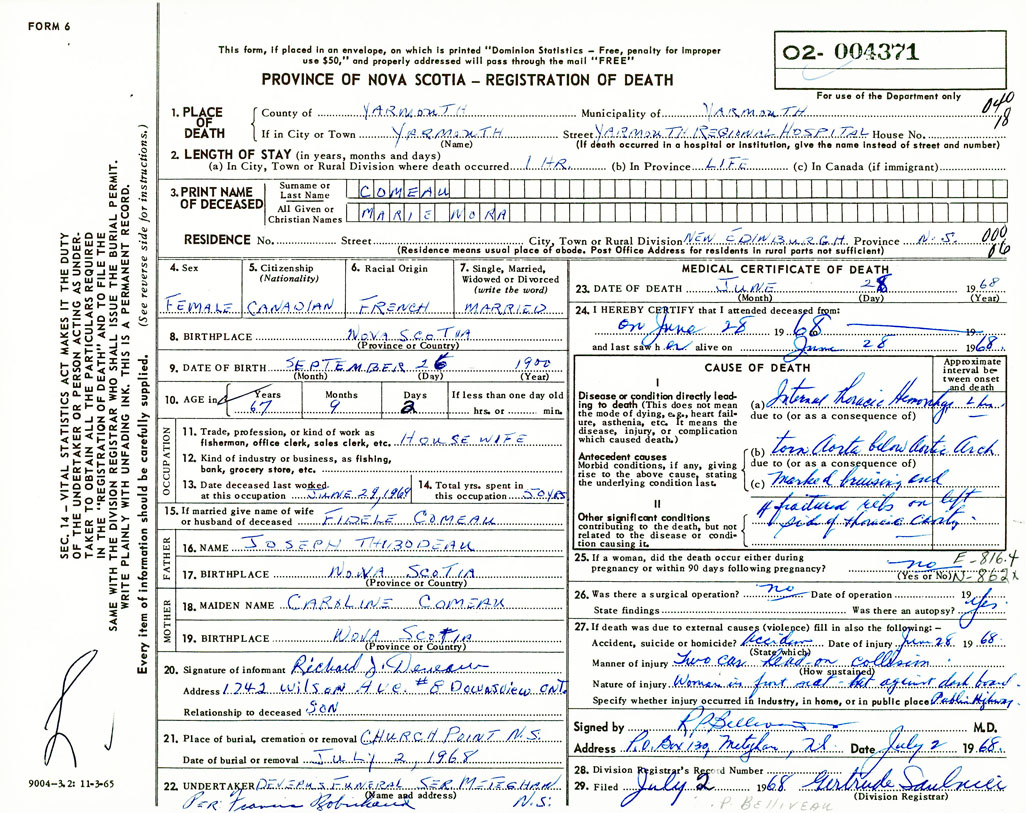 FORM 6
This form, if placed in an envelope, on which is printed "Dominion Statistics – Free, penalty for improper
use $50," and properly addressed will pass through the mail "FREE"
PROVINCE OF NOVA SCOTIA – REGISTRATION OF DEATH
02- 004371
For use of the Department only
SEC. 14 – VITAL STATISTICS ACT MAKES IT THE DUTY
OF THE UNDERTAKER OR PERSON ACTING AS UNDER-
TAKER TO OBTAIN ALL THE PARTICULARS REQUIRED
IN THE "REGISTRATION OF DEATH" AND TO FILE THE
SAME WITH THE DIVISION REGISTRAR WHO SHALL ISSUE THE BURIAL PERMIT.
WRITE PLAINLY WITH UNFADING INK. THIS IS A PERMANENT RECORD.
Every item of information should be carefully supplied. (See reverse side for instructions.)
1. PLACE OF DEATH
County of YARMOUTH Municipality of YARMOUTH 040
18
If in City or Town YARMOUTH Street YARMOUTH REGIONAL HOSPITAL House No.
(Name) (If death occurred in a hospital or institution, give the name instead of street and number)
2. LENGTH OF STAY (in years, months and days)
(a) In City, Town or Rural Division where death occurred 1 HR. (b) In Province LIFE (c) In Canada (if immigrant)
3. PRINT NAME OF DECEASED
Surname or Last Name COMEAU
All Given or Christian Names MARIE NORA
RESIDENCE No. Street City, Town or Rural Division NEW EDINBURGH Province N.S. 000
(Residence means usual place of abode. Post Office Address for residents in rural parts not sufficient)
4. Sex 5. Citizenship (Nationality) 6. Racial Origin 7. Single, Married, Widowed or Divorced (write the word)
FEMALE CANADIAN FRENCH MARRIED
8. BIRTHPLACE NOVA SCOTIA
(Province or Country)
9. DATE OF BIRTH SEPTEMBER 26 1900
(Month) (Day) (Year)
10. AGE in Years Months Days If less than one day old
67 9 2 hrs. or min.
OCCUPATION
11. Trade, profession, or kind of work as
fisherman, office clerk, sales clerk, etc. HOUSEWIFE
12. Kind of industry or business, as fishing,
bank, grocery store, etc.
13. Date deceased last worked at this occupation JUNE 29, 1968 14. Total yrs. spent in this occupation 50 YRS
15. If married give name of wife
or husband of deceased FIDELE COMEAU
FATHER
16. NAME JOSEPH THIBODEAU
17. BIRTHPLACE NOVA SCOTIA
(Province or Country)
MOTHER
18. MAIDEN NAME CAROLINE COMEAU
19. BIRTHPLACE NOVA SCOTIA
(Province or Country)
20. Signature of informant Richard J.
Address 1742 WILSON AVE. #8 DOWNSVIEW ONT.
Relationship to deceased SON
21. Place of burial, cremation or removal CHURCH POINT N.S.
Date of burial or removal JULY 2, 1968
22. UNDERTAKER FUNERAL SER METEGHAN
(Name and address) N.S.
Per: Francis Robichaud
9004-3.2: 11-3-65
MEDICAL CERTIFICATE OF DEATH
23. DATE OF DEATH JUNE 28 1968
(Month) (Day) (Year)
24. I HEREBY CERTIFY that I attended deceased from:
on June 28 1968 19
and last saw her alive on June 28 1968.
CAUSE OF DEATH
Approximate interval between onset and death
I
Disease or condition directly leading to death (This does not mean the mode of dying, e.g., heart failure, asthenia, etc. It means the disease, injury, or complication which caused death.)
(a) Internal Thoracic Hemorrhage
due to (or as a consequence of)
Antecedent causes
Morbid conditions, if any, giving rise to the above cause, stating the underlying condition last.
(b) torn Aorta below Aortic Arch
due to (or as a consequence of)
(c) Marked bruising and
II
Other significant conditions contributing to the death, but not related to the disease or condition causing it.
fractured ribs on left
side of thoracic
25. If a woman, did the death occur either during
pregnancy or within 90 days following pregnancy? no
(Yes or No)
E-816.4
N-862x
26. Was there a surgical operation? no Date of operation 19
State findings Was there an autopsy? Yes
27. If death was due to external causes (violence) fill in also the following:–
Accident, suicide or homicide? Accident Date of injury June 28 1968.
(State which)
Manner of injury Two car head-on collision
(How sustained)
Nature of injury Woman in front seat - hit against dash board
Specify whether injury occurred in industry, in home, or in public place Public Highway
Signed by R.P. Belliveau M.D.
Address P.O. Box 139, Meteghan, NS Date July 2 1968.
28. Division Registrar's Record Number
29. Filed July 2 1968 Gertrude Saulnier
(Division Registrar)
P. BELLIVEAU